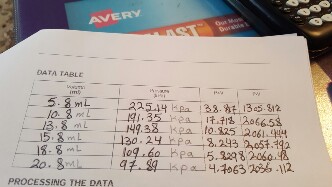 AVERY
DATA TABLE
Volume (ml) Pressure (kPa) P/V PV
5.8 mL 225.14 kpa 38.87 1305.812
10.8 mL 191.35 kpa 17.718 2066.58
13.8 mL 149.38 kpa 10.825 2061.444
15.8 mL 130.24 kpa 8.243 2057.792
18.8 mL 109.60 kpa 5.8298 2060.48
20.8 mL 97.89 kpa 4.7063 2036.112
PROCESSING THE DATA